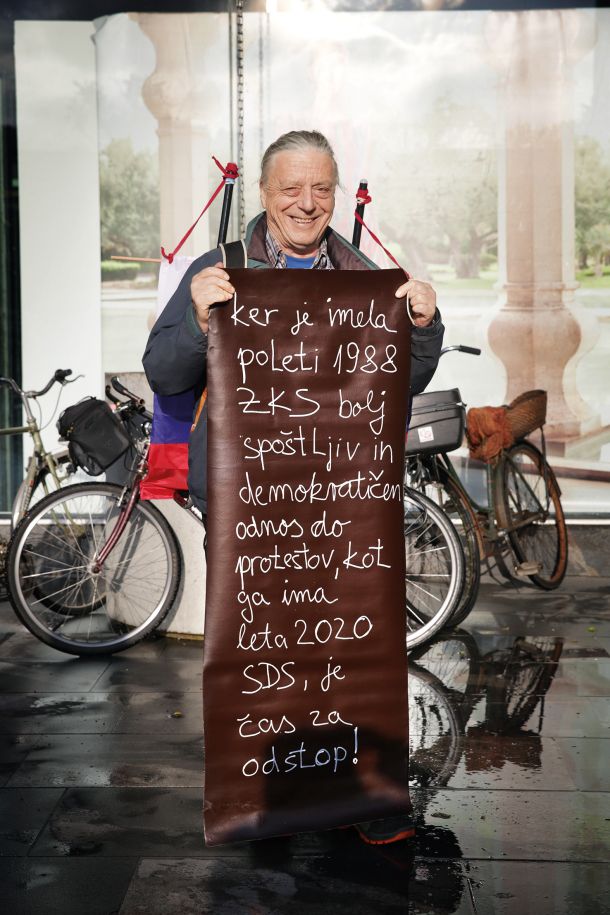 ker je imela
poleti 1988
ZKS bolj
spoštljiv in
demokratičen
odnos do
protestov, kot
ga ima
leta 2020
SDS, je
čas za
odstop!